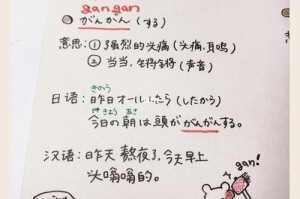 gangan
がんがん（する）
意思：①强烈的头痛（头痛.耳鸣）
② 当当，锵锵（声音）
きのう
日语：昨日オールしたら（したから）
きょう あさ
今日の朝は頭ががんがんする。
汉语：昨天熬夜了，今天早上
头嗡嗡的。
gan!